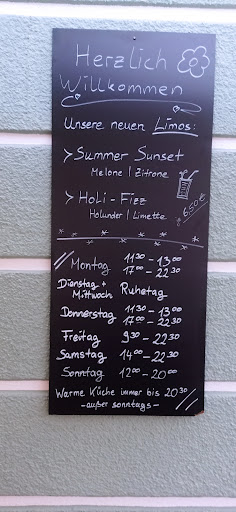 Herzlich
Willkommen
Unsere neuen Limos:
> Summer Sunset
Melone | Zitrone
> Holi - Fizz
Holunder | Limette
6,50 €
Montag 11³⁰ - 13⁰⁰
17⁰⁰ - 22³⁰
Dienstag +
Mittwoch Ruhetag
Donnerstag 11³⁰ - 13⁰⁰
17⁰⁰ - 22³⁰
Freitag 9³⁰ - 22³⁰
Samstag 14⁰⁰ - 22³⁰
Sonntag 12⁰⁰ - 20⁰⁰
Warme Küche immer bis 20³⁰
- außer sonntags -